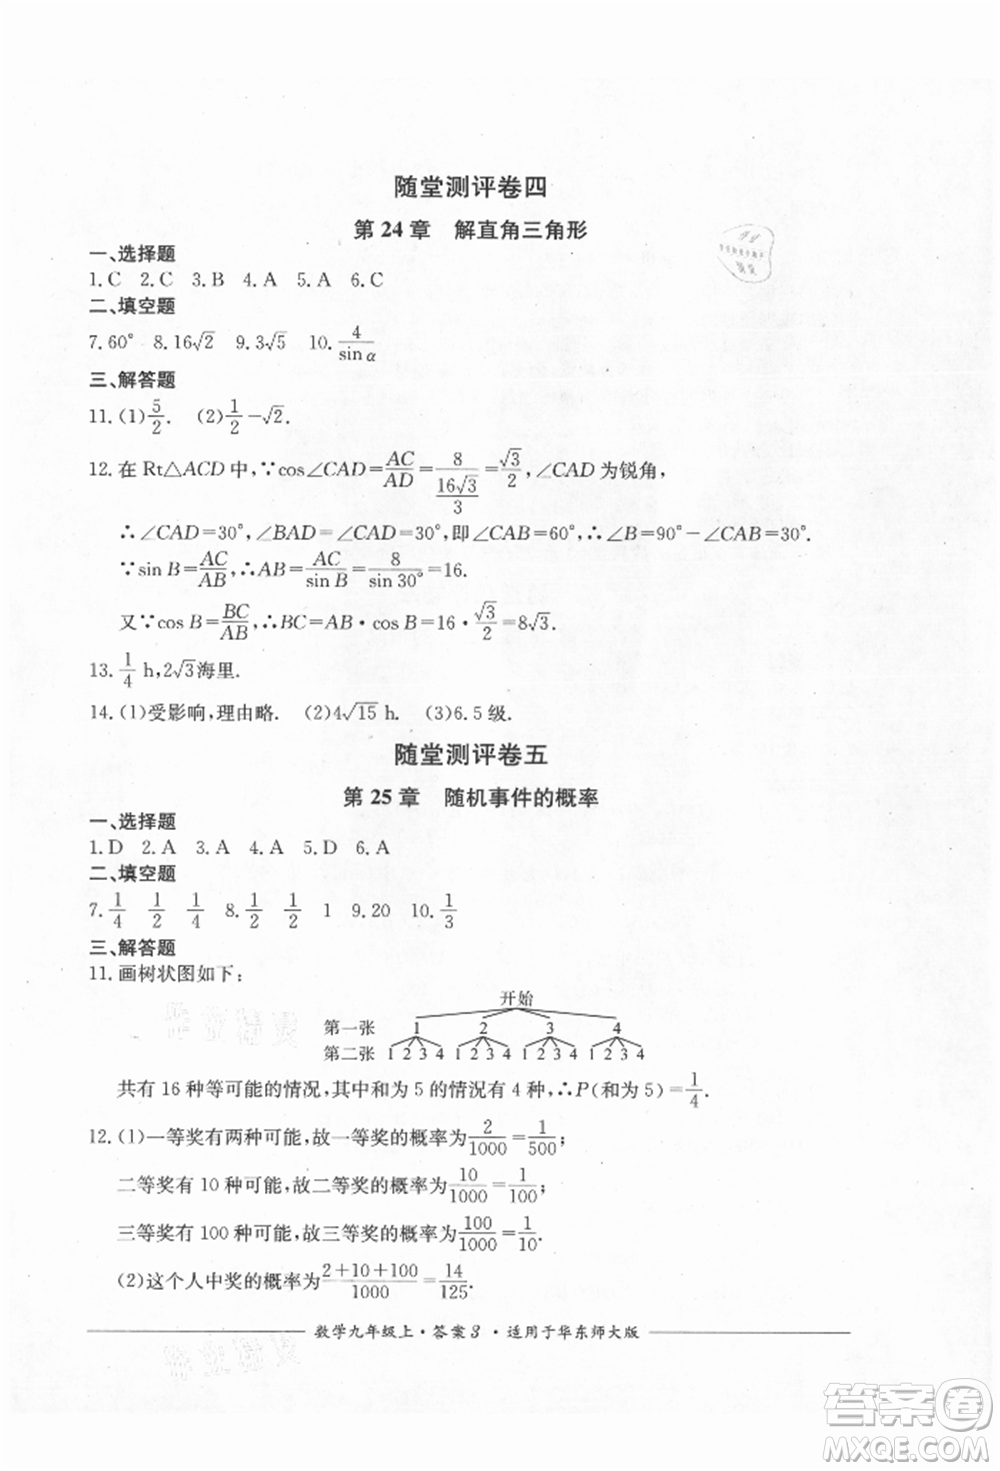 随堂测评卷四
第 24 章　解直角三角形
一、选择题
1.C　2.C　3.B　4.A　5.A　6.C
二、填空题
7.60°　8.16√2　9.3√5　10.4/sin α
三、解答题
11.(1)5/2.　(2)1/2-√2.
12.在 Rt△ACD 中,∵cos∠CAD=AC/AD=8/(16√3/3)=√3/2,∠CAD 为锐角,
∴∠CAD=30°,∠BAD=∠CAD=30°,即∠CAB=60°,∴∠B=90°-∠CAB=30°.
∵sin B=AC/AB,∴AB=AC/sin B=8/sin 30°=16.
又∵cos B=BC/AB,∴BC=AB·cos B=16·√3/2=8√3.
13.1/4 h,2√3海里.
14.(1)受影响,理由略.　(2)4√15 h.　(3)6.5级.
随堂测评卷五
第 25 章　随机事件的概率
一、选择题
1.D　2.A　3.A　4.A　5.D　6.A
二、填空题
7.1/4　1/2　1/4　8.1/2　1　9.20　10.1/3
三、解答题
11.画树状图如下:
开始
第一张　1　2　3　4
第二张　1 2 3 4　1 2 3 4　1 2 3 4　1 2 3 4
共有 16 种等可能的情况,其中和为 5 的情况有 4 种,∴P(和为 5)=1/4.
12.(1)一等奖有两种可能,故一等奖的概率为2/1000=1/500;
二等奖有 10 种可能,故二等奖的概率为10/1000=1/100;
三等奖有 100 种可能,故三等奖的概率为100/1000=1/10.
(2)这个人中奖的概率为(2+10+100)/1000=14/125.
数学九年级上·答案 3·适用于华东师大版
答案卷
MXQE.COM